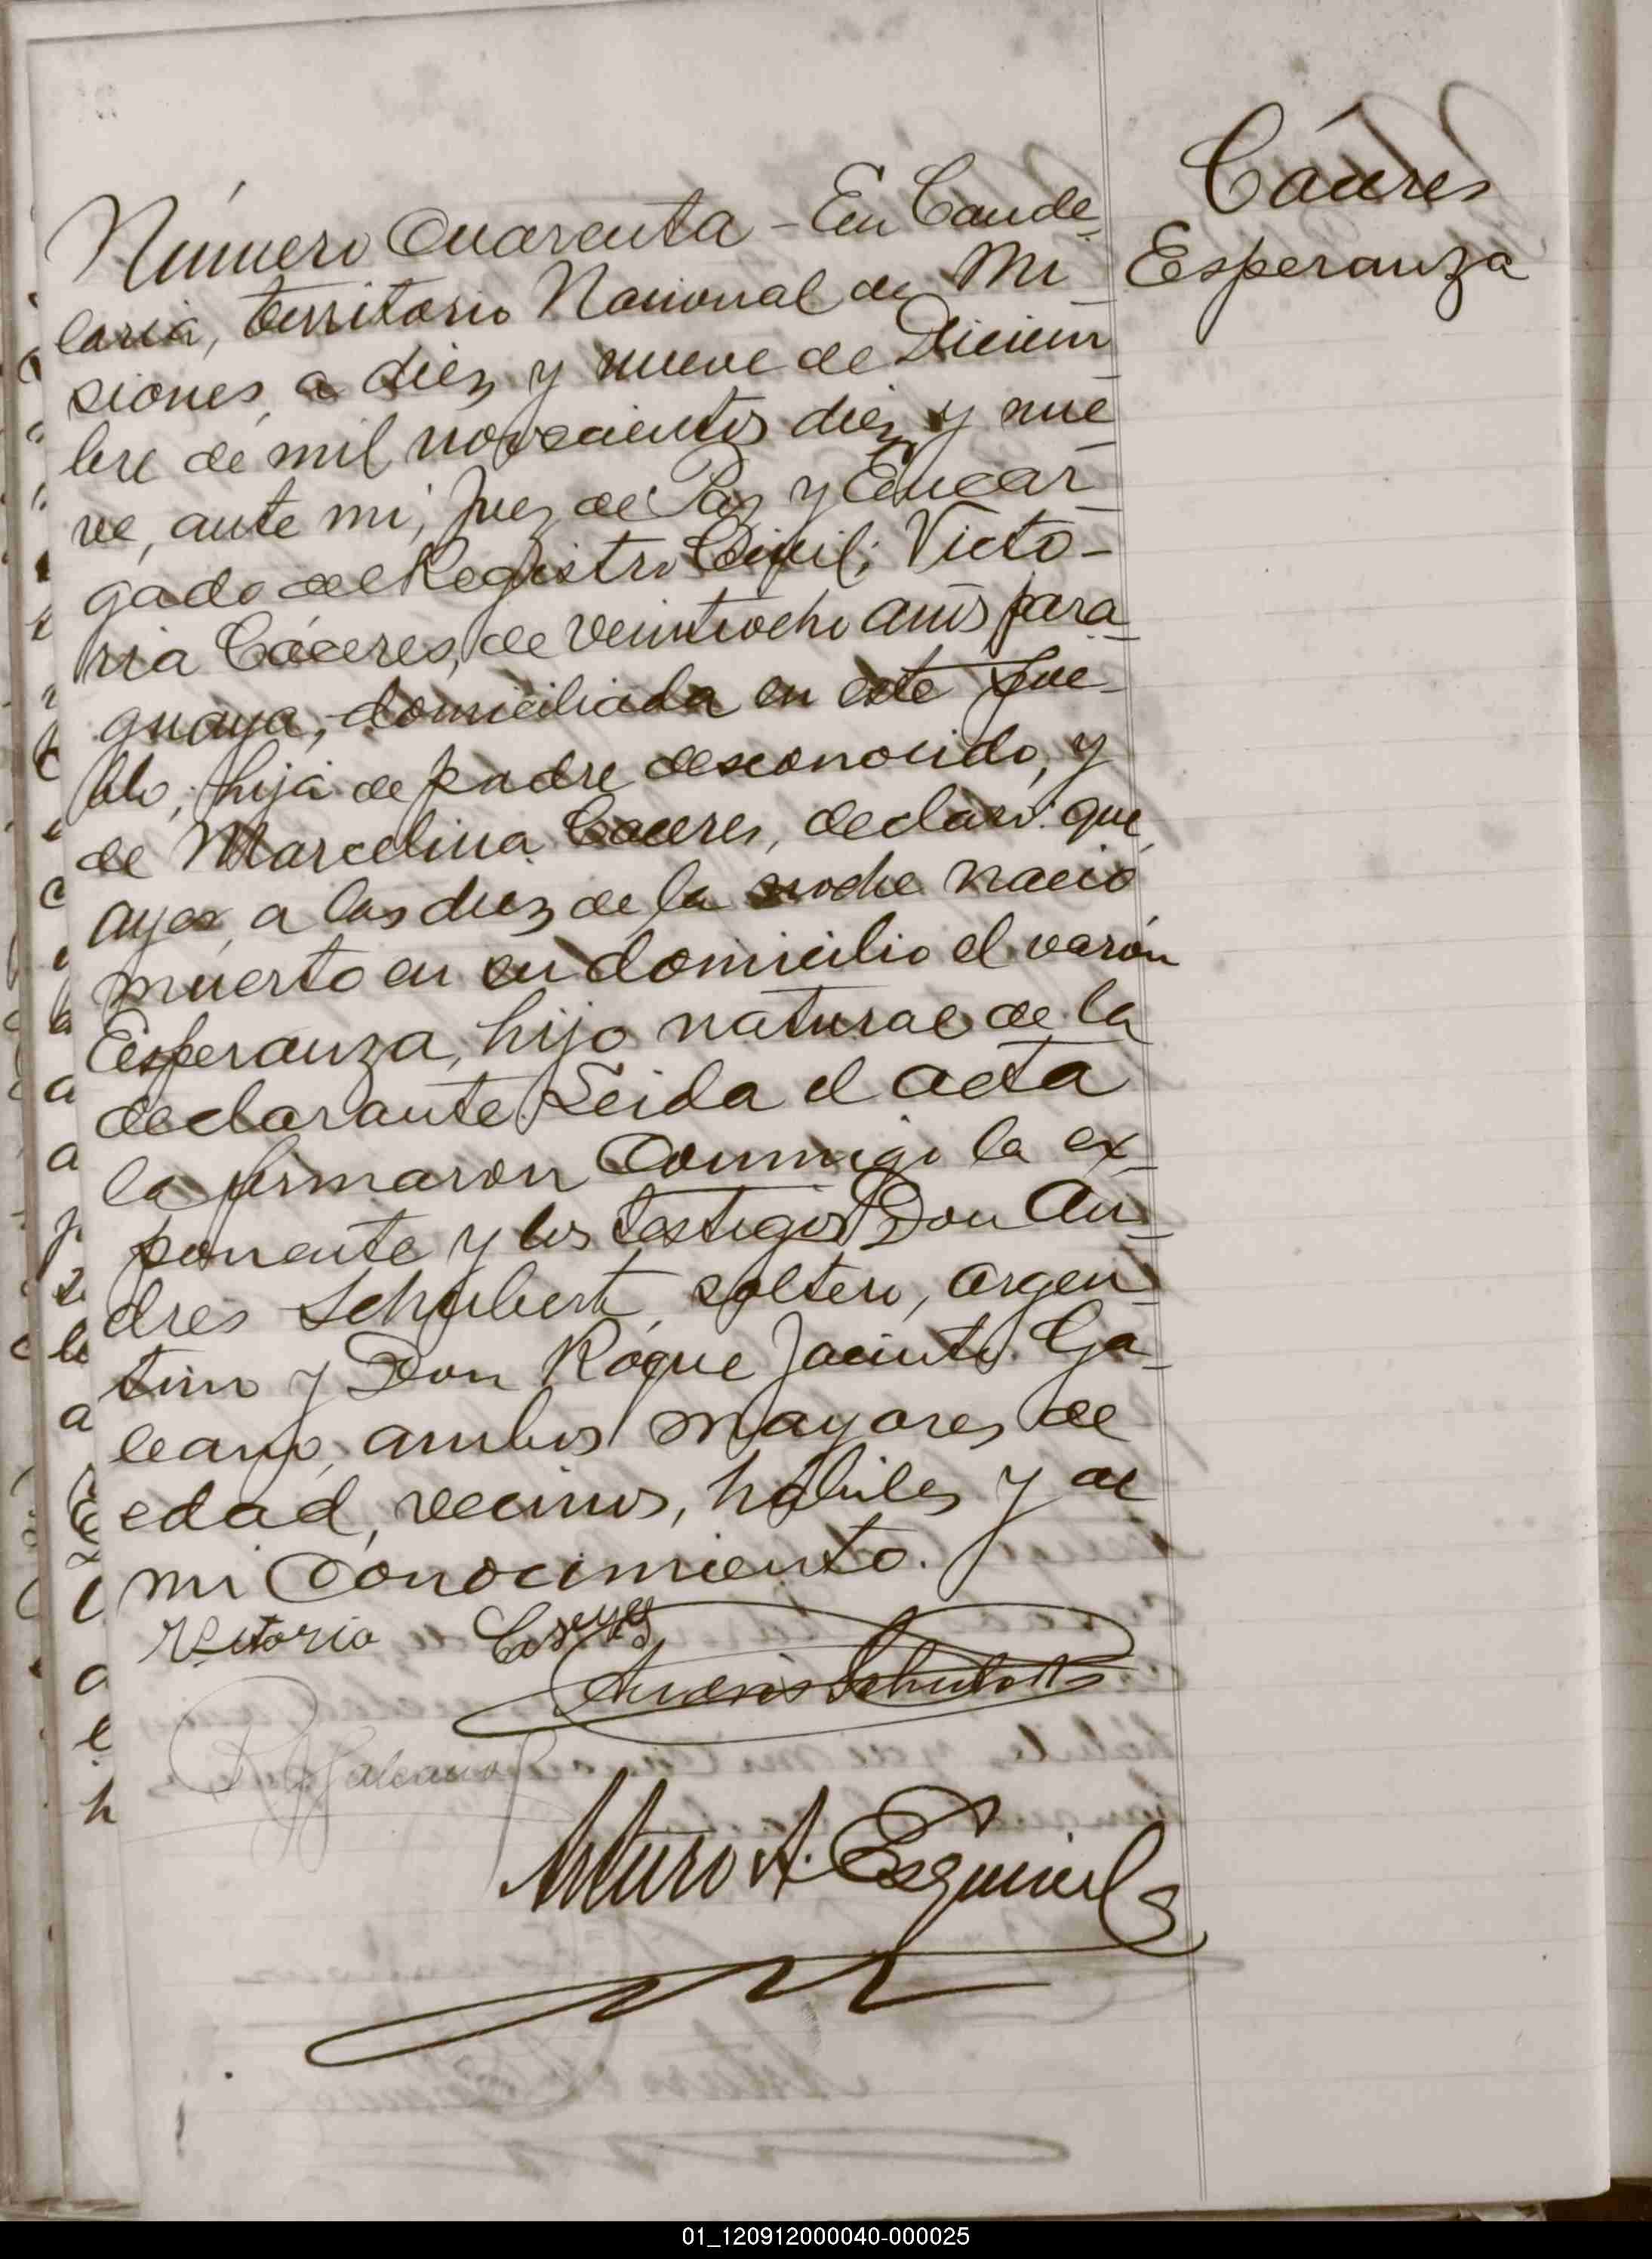 Cáceres
Esperanza
Número Cuarenta - En Cande_
laria, territorio Nacional de Mi_
siones, a diez y nueve de Diciem_
bre de mil novecientos diez y nue_
ve, ante mi, Juez de Paz y Encar_
gado del Registro Civil; Victo-
ria Cáceres, de veintiocho años para_
guaya, domiciliada en este pue_
blo, hija de padre desconocido, y
de Marcelina Caceres, declaró: que
ayer, a las diez de la noche nació
muerto en su domicilio el varón
Esperanza, hijo natural de la
declarante. Leida el acta
la firmaron conmigo la ex_
ponente y los testigos Don An_
dres Schubert, soltero, argen_
tino y Don Roque Jacinto Ga_
leano, ambos mayores de
edad, vecinos, habiles y de
mi conocimiento.
Vitoria
Andrés Schubert
R J Galeano
Arturo A. Esquivel
01_120912000040-000025